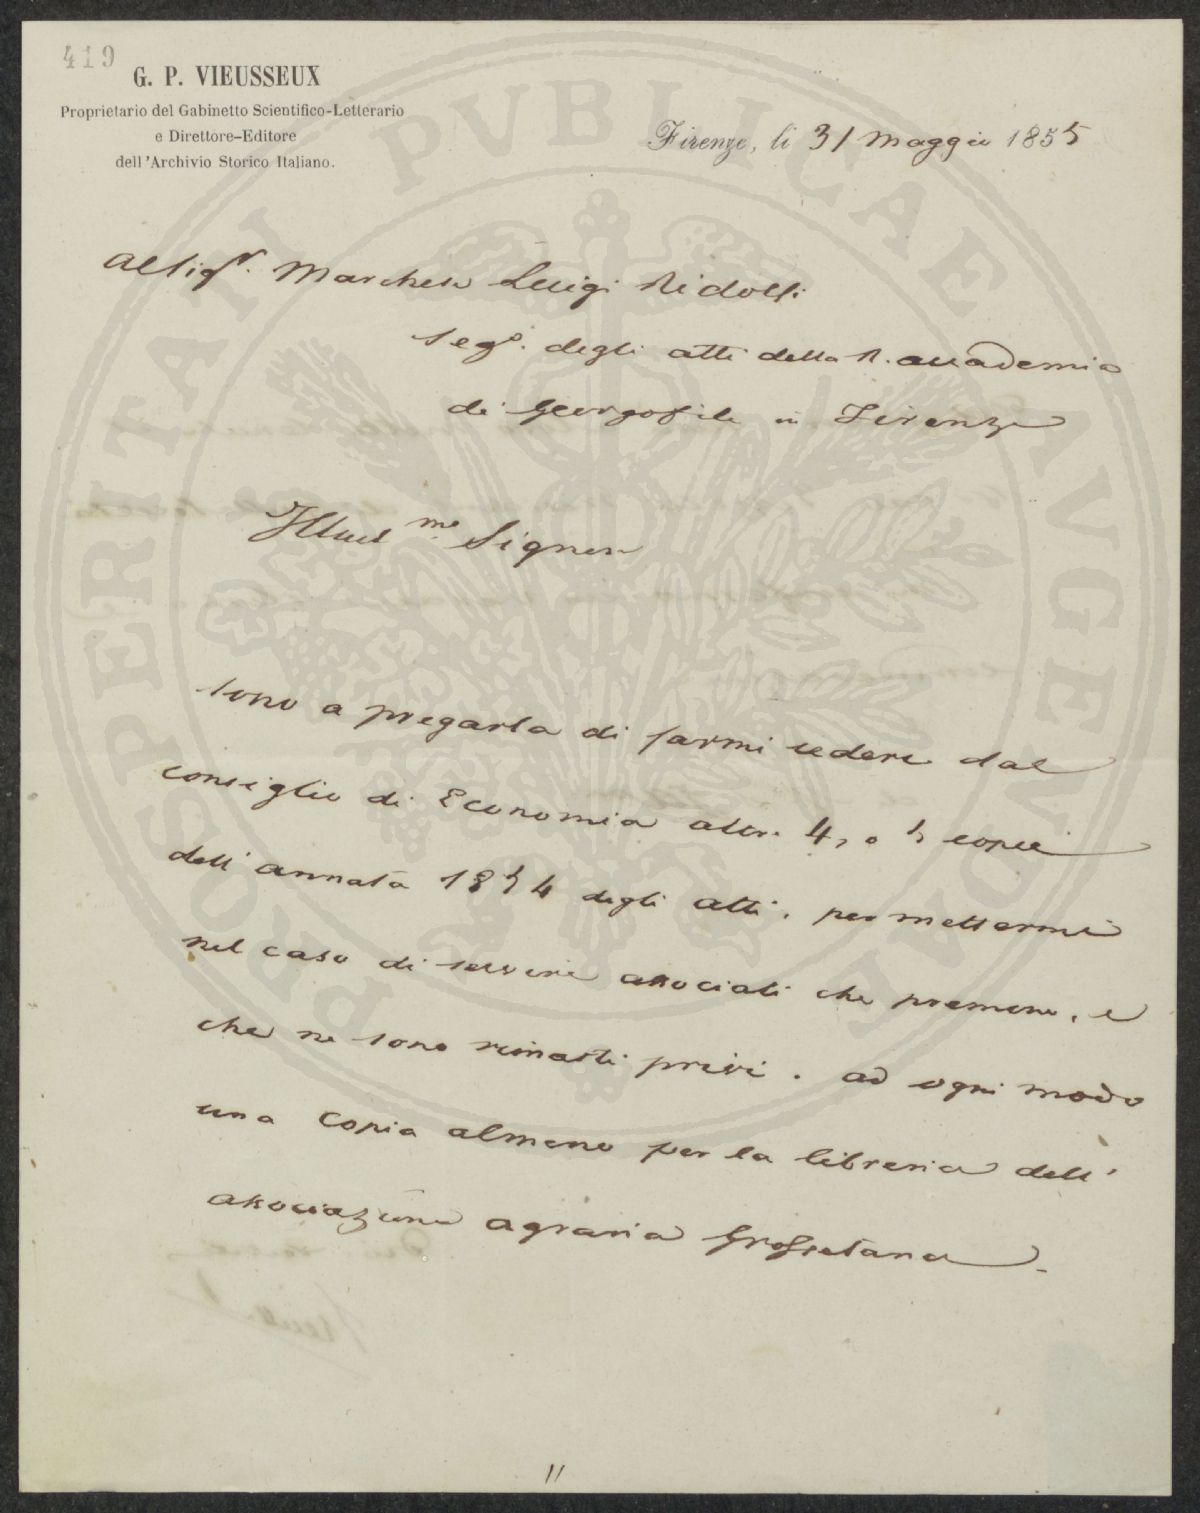 419
G. P. VIEUSSEUX
Proprietario del Gabinetto Scientifico-Letterario
e Direttore-Editore
dell'Archivio Storico Italiano.
Firenze, li 31 Maggio 1855
Al Sigr. Marchese Luigi Ridolfi
Sego. degli atti della R. Accademia
di Georgofili in Firenze
Illust mo Signore
Sono a pregarla di farmi cedere dal
consiglio di Economia altre 4, o 5 copie
dell'annata 1854 degli atti, per mettermi
nel caso di servire associati che premono, e
che ne sono rimasti privi. ad ogni modo
una copia almeno per la libreria dell'
associazione agraria Grossetana.
11
PROSPERITATI PVBLICAE AVGENDAE